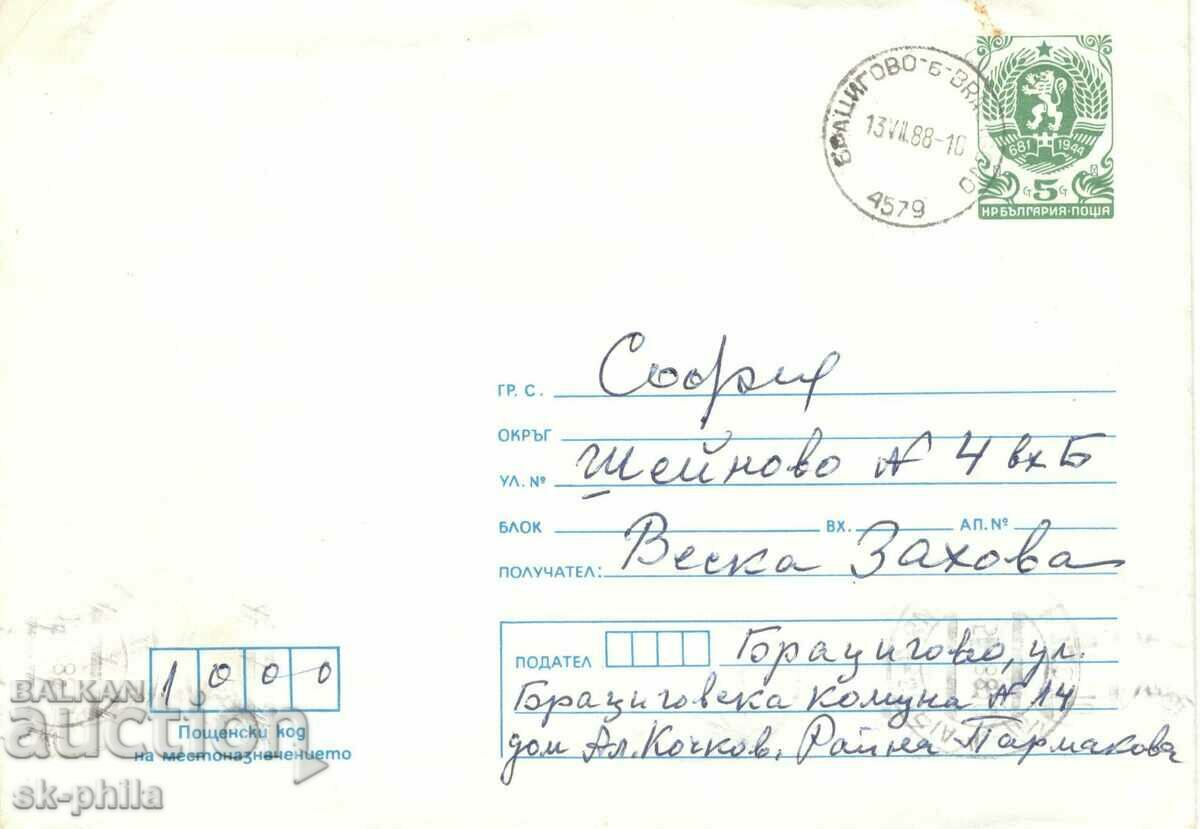 БРАЦИГОВО-Б-BRA
13.VII.88-10
4579
681 1944
G 5 G
НР БЪЛГАРИЯ·ПОЩА
ГР. С. София
ОКРЪГ
УЛ. № Шейново № 4 вх Б
БЛОК ВХ. АП. №
ПОЛУЧАТЕЛ: Веска Захова
ПОДАТЕЛ Брацигово, ул.
Брациговска комуна № 14
дом Ал. Кочков, Райна Пармакова
1000
Пощенски код
на местоназначението
BALKAN
auction
sk-phila